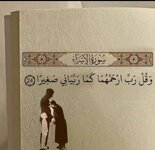 سُورَةُ الإِسْرَاءِ
وَقُل رَّبِّ ارْحَمْهُمَا كَمَا رَبَّيَانِي صَغِيرًا ﴿٢٤﴾